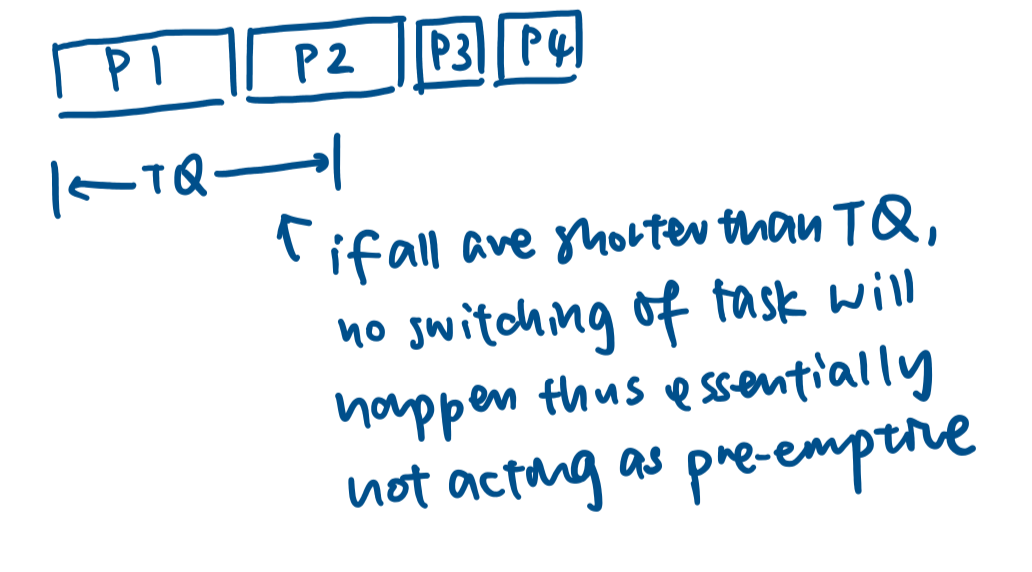 P1 P2 P3 P4
TQ
if all are shorter than TQ,
no switching of task will
happen thus essentially
not acting as pre-emptive